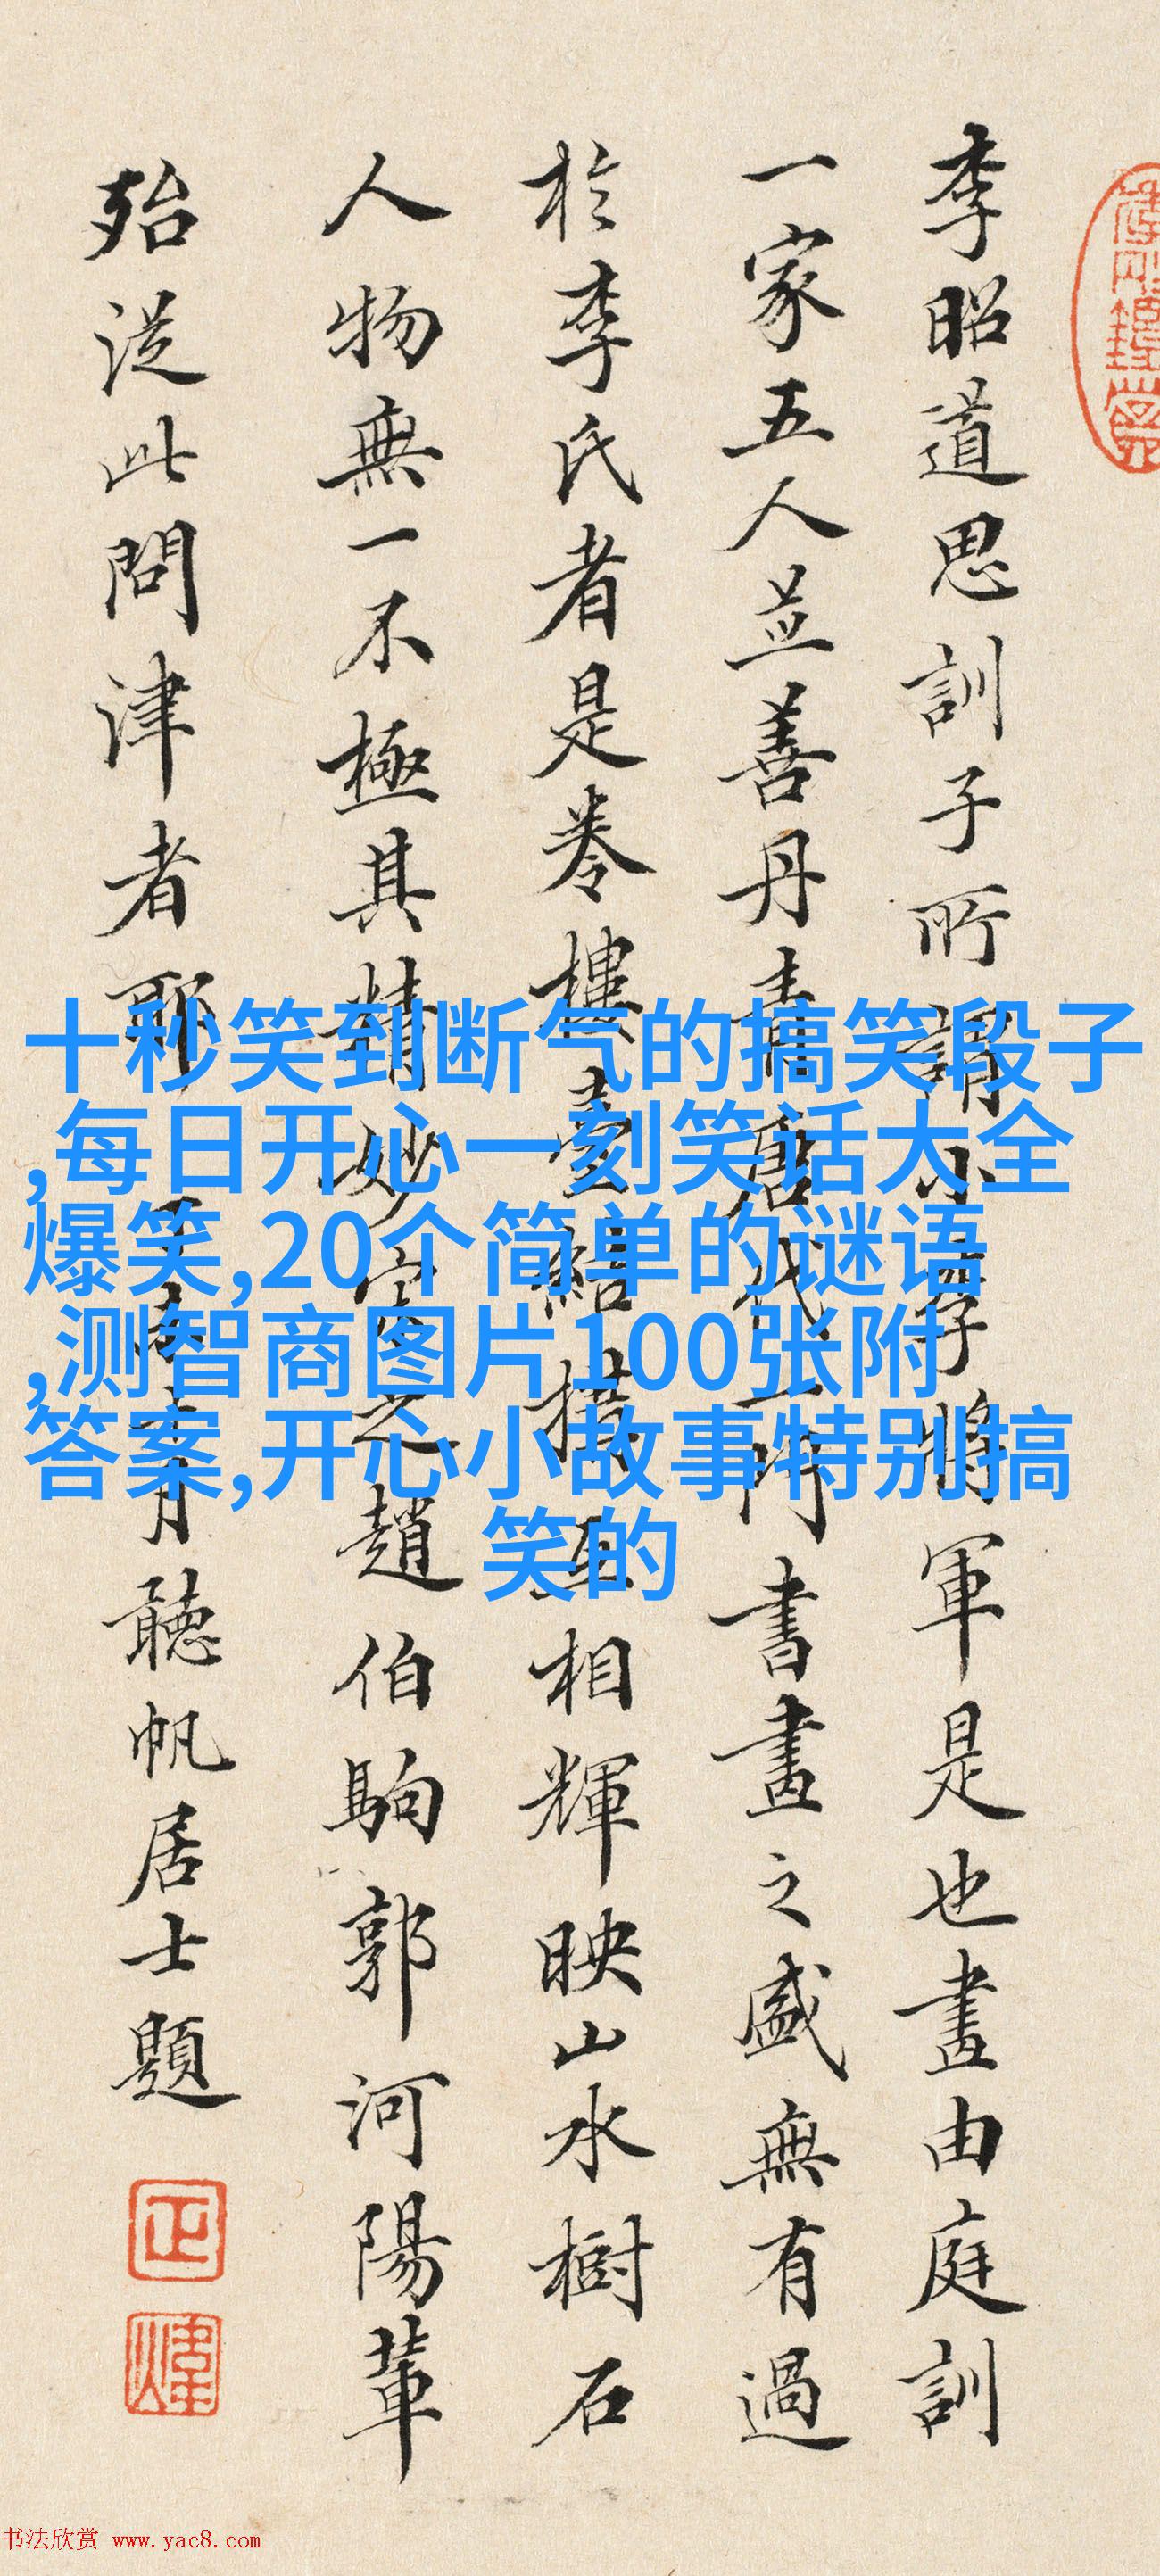 李昭道思訓子所謂小李將軍是也畫由庭訓
一家五人並善丹青唐代一門書畫之盛無有過
於李氏者是卷樓臺結構互相輝映山水樹石
人物無一不極其精妙宋之趙伯駒郭河陽輩
殆從此問津者耶
聽帆居士題
十秒笑到断气的搞笑段子
,每日开心一刻笑话大全
爆笑,20个简单的谜语
,测智商图片100张附
答案,开心小故事特别搞
笑的
书法欣赏 www.yac8.com